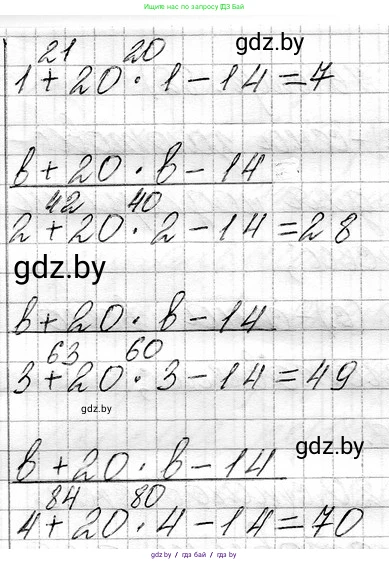 Ищите нас по запросу ГДЗ Бай
21 20
gdz.by
1 + 20 · 1 - 14 = 7
в + 20 · в - 14
42 40
2 + 20 · 2 - 14 = 28
gdz.by
в + 20 · в - 14
63 60
3 + 20 · 3 - 14 = 49
gdz.by
в + 20 · в - 14
gdz.by
84 80
4 + 20 · 4 - 14 = 70
gdz.by / гдз бай / gdz.by